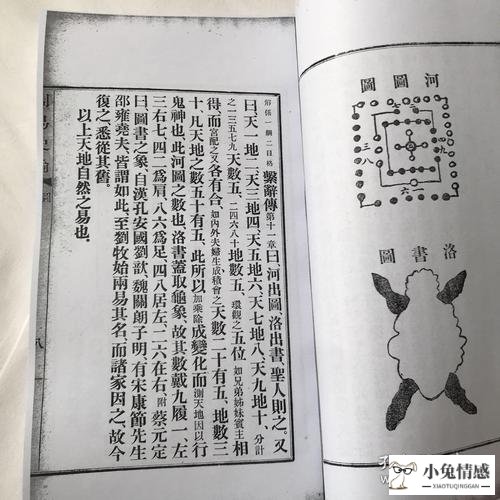 解係一個二目格 繫辭傳第十一章曰、河出圖、洛出書聖人則之。又
曰天一地二、天三地四、天五地六、天七地八、天九地十、分計
之一三五七九天數五、二四六八十地數五、環觀之五位如兄弟姊妹賓主相
得而宮配之又各有合、如內外夫婦生成積會之天數二十有五、地數三
十、凡天地之數五十有五、此所以加乘除成變化而測天地因以行
鬼神也、此河圖之數也、洛書蓋取龜象、故其數戴九履一、左
三右七、四二爲肩、八六爲足、四八居左、二六在右、附蔡元定
曰圖書之象、自漢孔安國劉歆、魏關朗子明、有宋康節先生
邵雍堯夫皆謂如此、至劉牧始兩易其名、而諸家因之、故今
復之、悉從其舊。
以上天地自然之易也。
河圖圖
三八
洛書圖
小兔情感
XIAOTUQINGGAN